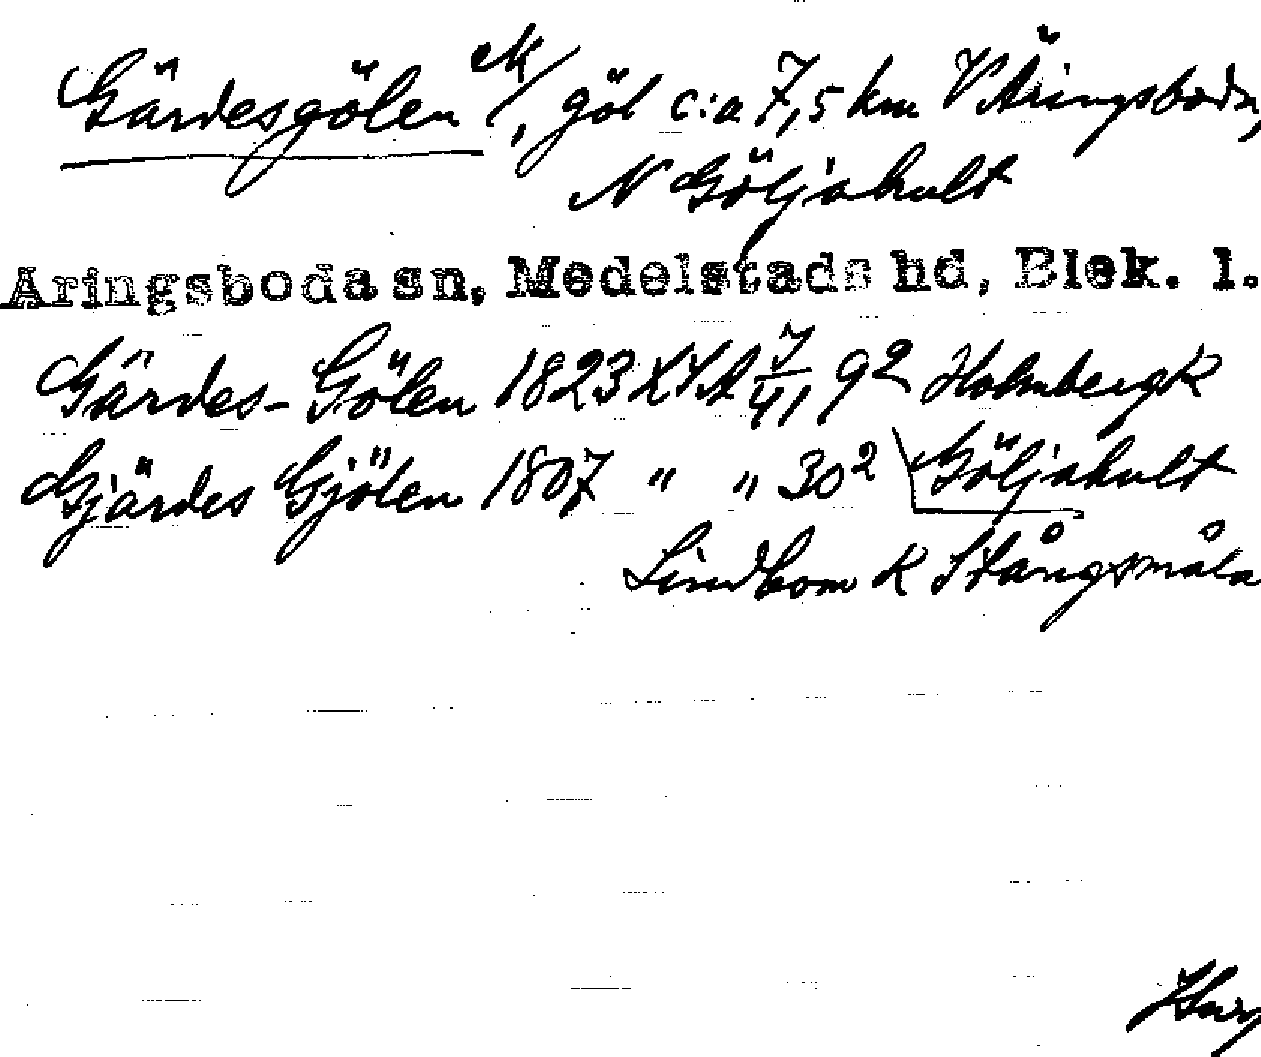 Gärdesgölen M/, göl c:a 7,5 km V Äringsboda,
N Göljahult
Äringsboda sn, Medelstads hd, Blek. l.
Gärdes-Gölen 1823 LSA 7/41, 92 Holmberg K
Gjärdes Gjölen 1807 " " 30² Göljahult
Lindbom K Stångsmåla